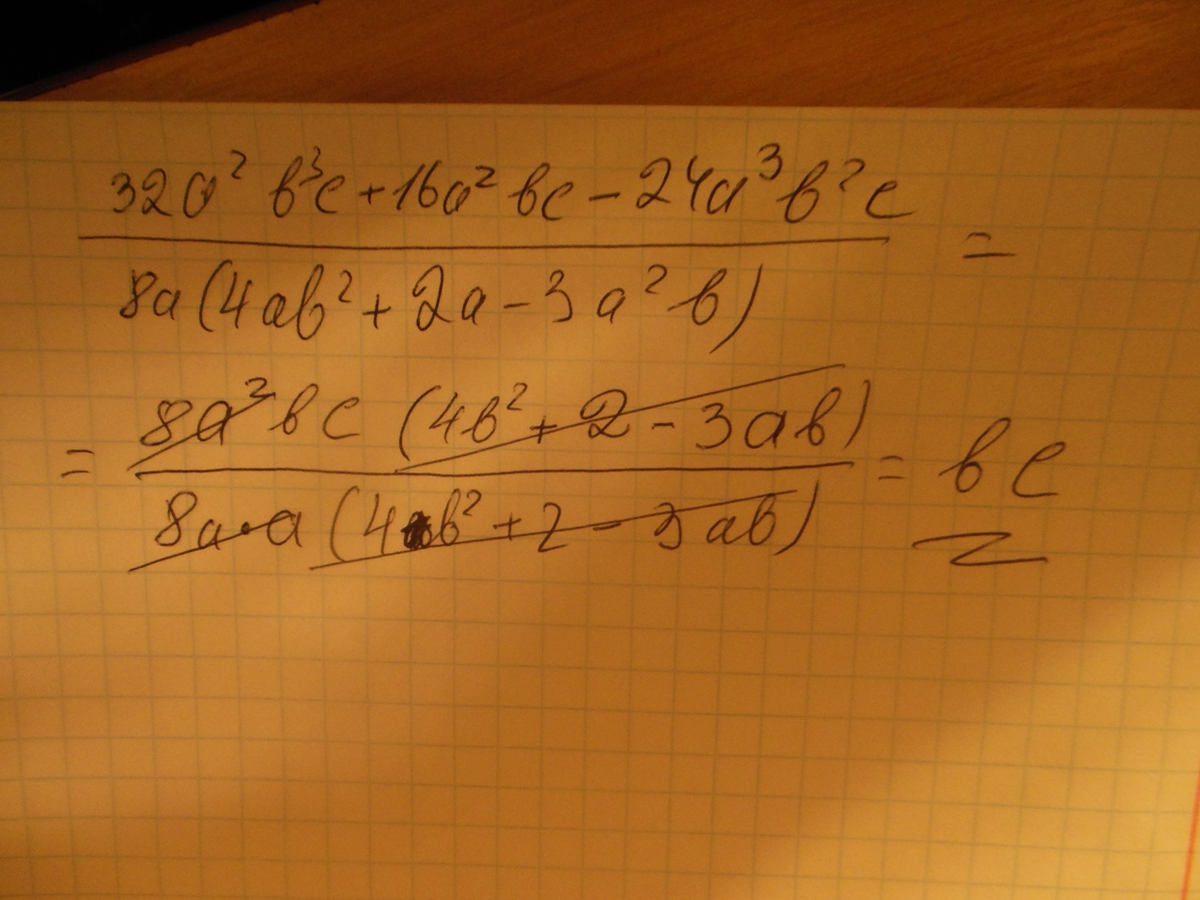 32a² b³c + 16a² bc - 24a³ b² c
8a (4ab² + 2a - 3a² b)
=
= 8a² bc (4b² + 2 - 3ab)
8a·a (4b² + 2 - 3ab)
= bc